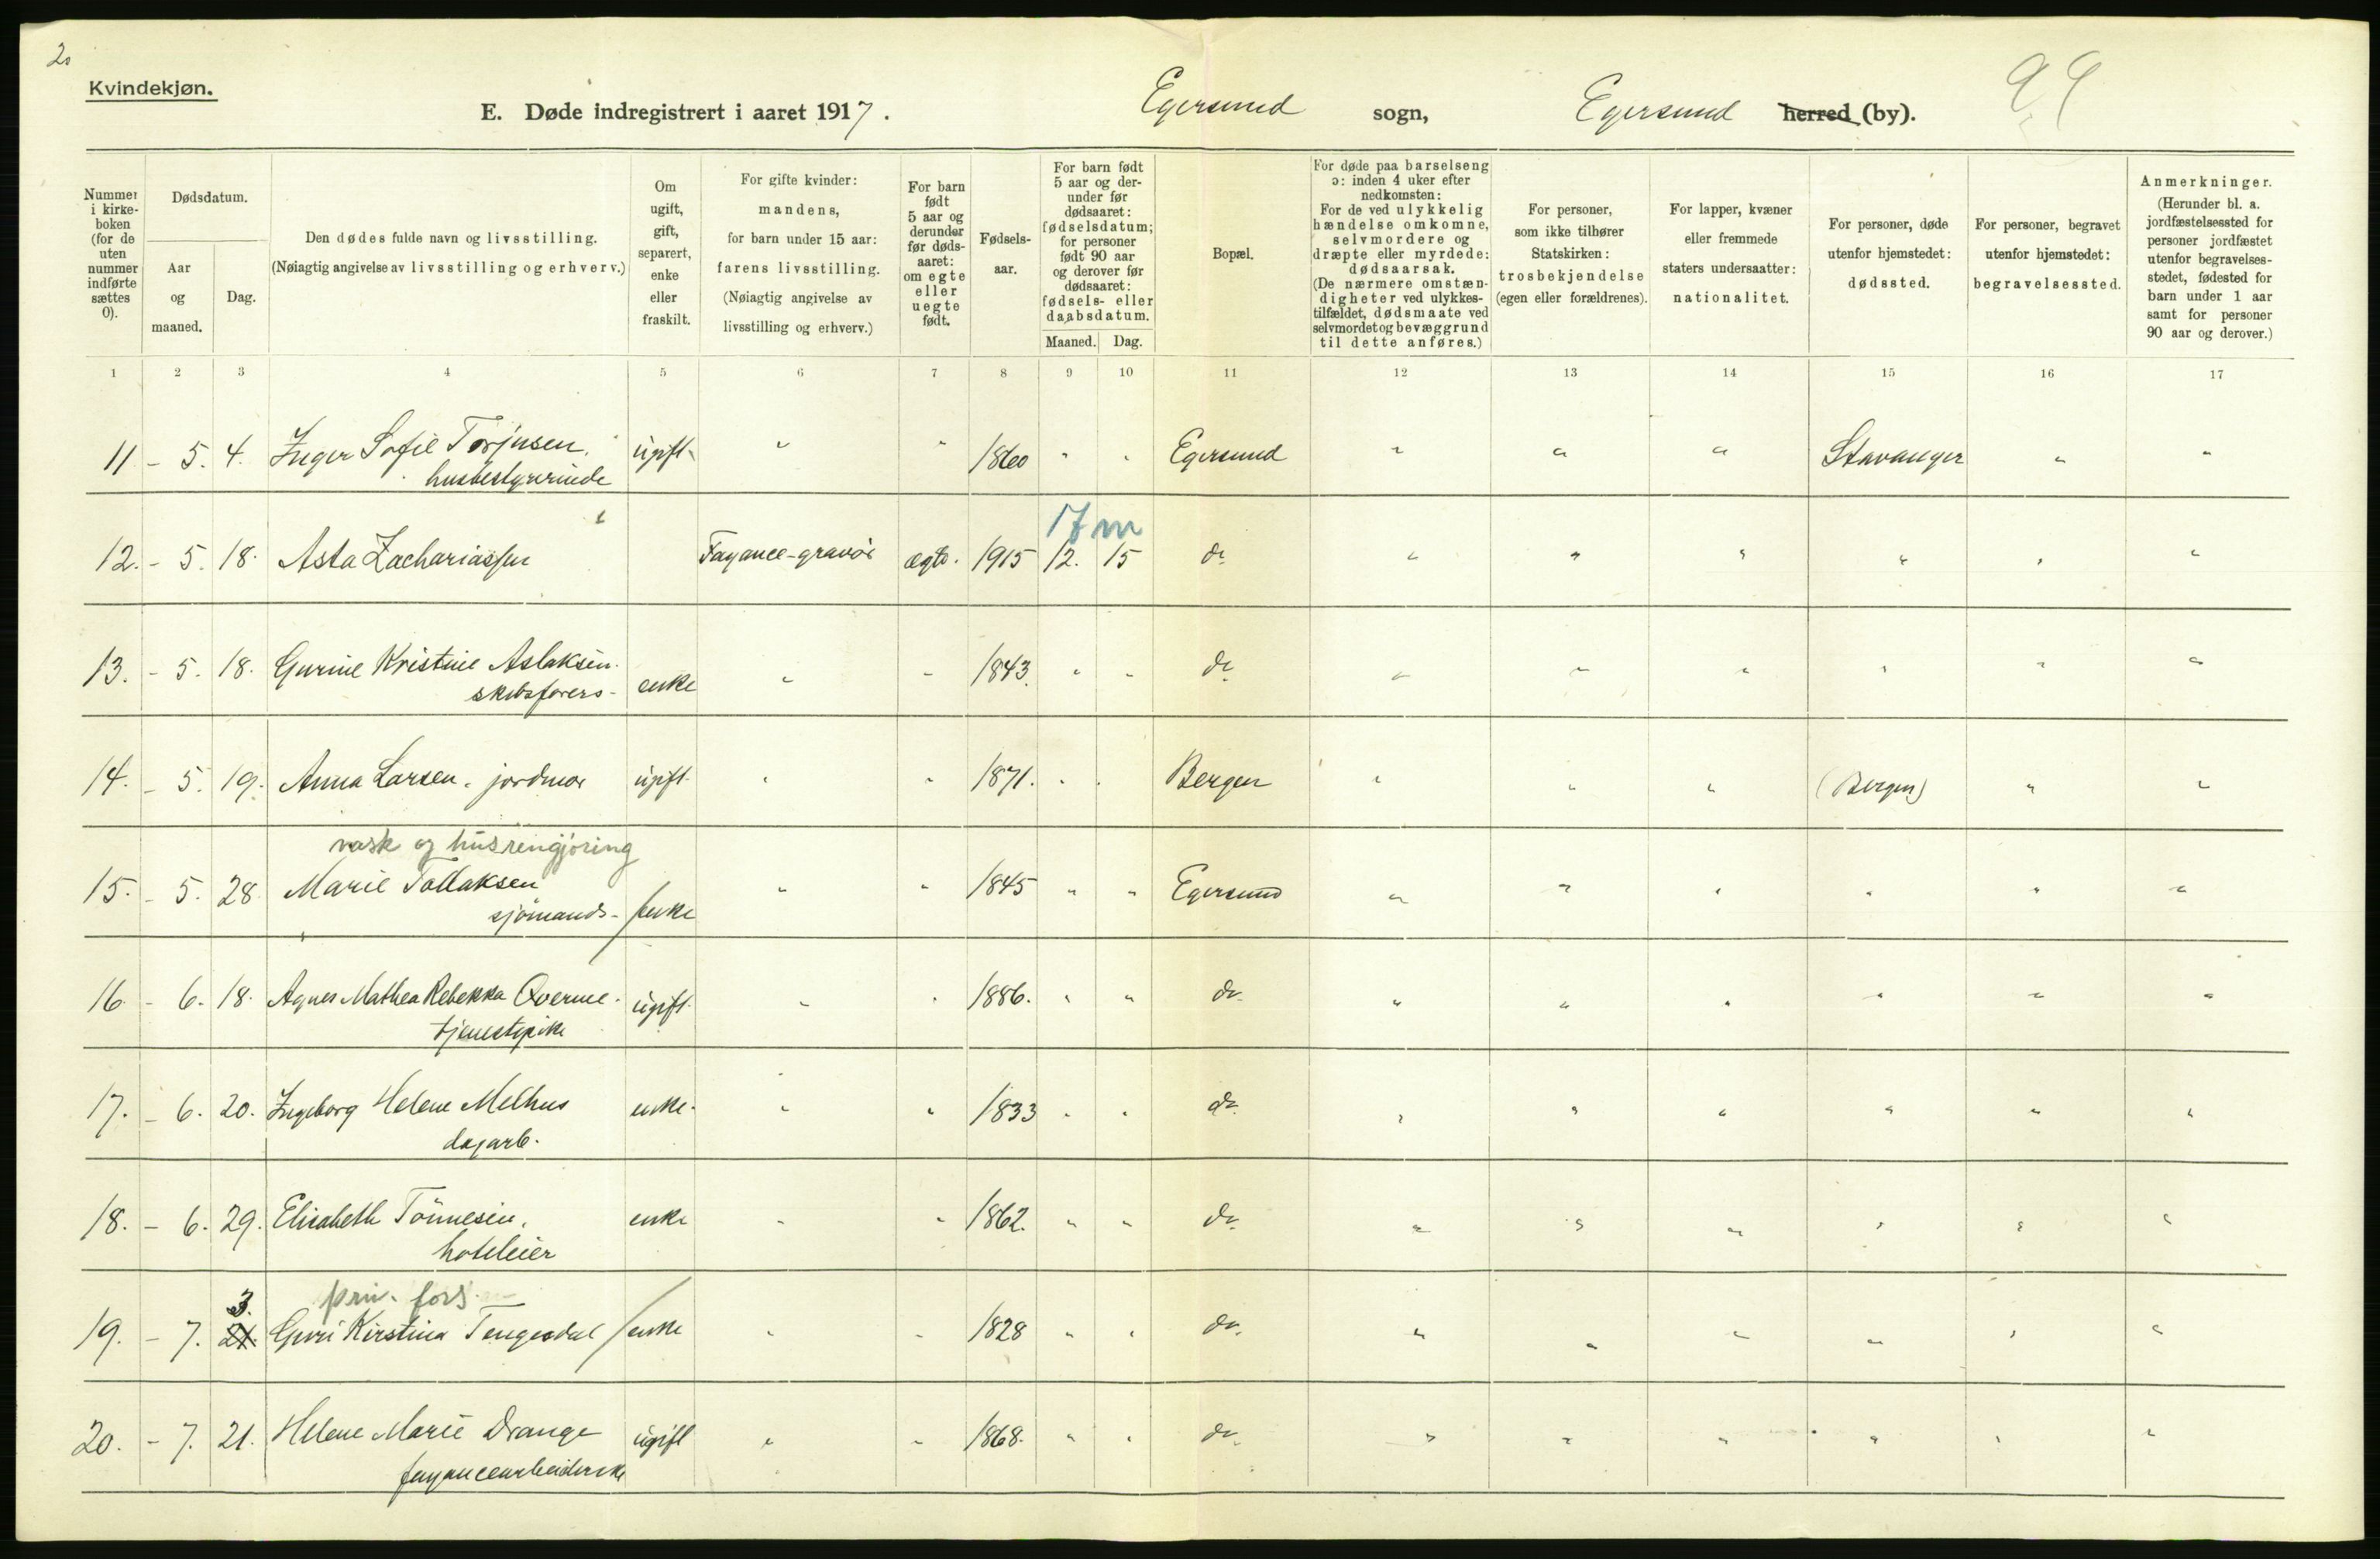 2.
Kvindekjøn.
E. Døde indregistrert i aaret 1917. Egersund sogn, Egersund herred (by).
Nummer i kirkeboken (for de uten nummer indførte sættes 0).
Dødsdatum.
Aar og maaned.
Dag.
Den dødes fulde navn og livsstilling.
(Nøiagtig angivelse av livsstilling og erhverv.)
Om ugift, gift, separert, enke eller fraskilt.
For gifte kvinder: mandens, for barn under 15 aar: farens livsstilling.
(Nøiagtig angivelse av livsstilling og erhverv.)
For barn født 5 aar og derunder før dødsaaret: om egte eller uegte født.
Fødselsaar.
For barn født 5 aar og derunder før dødsaaret: fødselsdatum; for personer født 90 aar og derover før dødsaaret: fødsels- eller daabsdatum.
Maaned. Dag.
Bopæl.
For døde paa barselseng ɔ: inden 4 uker efter nedkomsten:
For de ved ulykkelig hændelse omkomne, selvmordere og dræpte eller myrdede: dødsaarsak.
(De nærmere omstændigheter ved ulykkestilfældet, dødsmaate ved selvmordet og bevæggrund til dette anføres.)
For personer, som ikke tilhører Statskirken: trosbekjendelse (egen eller forældrenes).
For lapper, kvæner eller fremmede staters undersaatter: nationalitet.
For personer, døde utenfor hjemstedet: dødssted.
For personer, begravet utenfor hjemstedet: begravelsessted.
Anmerkninger.
(Herunder bl. a. jordfæstelsessted for personer jordfæstet utenfor begravelsesstedet, fødested for barn under 1 aar samt for personer 90 aar og derover.)
1 2 3 4 5 6 7 8 9 10 11 12 13 14 15 16 17
11 - 5. 4. Inger Sofie Torjusen, ugift " " 1860 " " Egersund " " " Stavanger " "
husbestyrerinde
17 m
12. - 5. 18. Asta Zachariassen Fayance-gravör ægte. 1915 12. 15 do " " " " " "
13. - 5. 18. Gurine Kristine Aslaksen enke " " 1843. " " do " " " " " "
skibsførers-
14. - 5. 19. Anna Larsen, jordmor ugift " " 1871. " " Bergen " " " (Bergen) " "
vask og husrengjöring
15. - 5. 28. Marie Tollaksen / enke " " 1845 " " Egersund " " " " " "
sjömands-
16 - 6. 18. Agnes Mathea Rebekka Qverme. ugift " " 1886. " " do " " " " " "
tjenestepike
17. - 6. 20. Ingeborg Helene Melhus enke. " " 1833 " " do. " " " " " "
dagarb.
18. - 6. 29. Elisabeth Tönnesen, enke " " 1862. " " do. " " " " " "
hoteleier
3. priv. fors.
19. - 7. 21. Guri Kirstina Tengesdal / enke " " 1828 " " do. " " " " " "
20. - 7. 21. Helene Marie Drange ugift " " 1868. " " do. " " " " " "
fayancearbeiderske